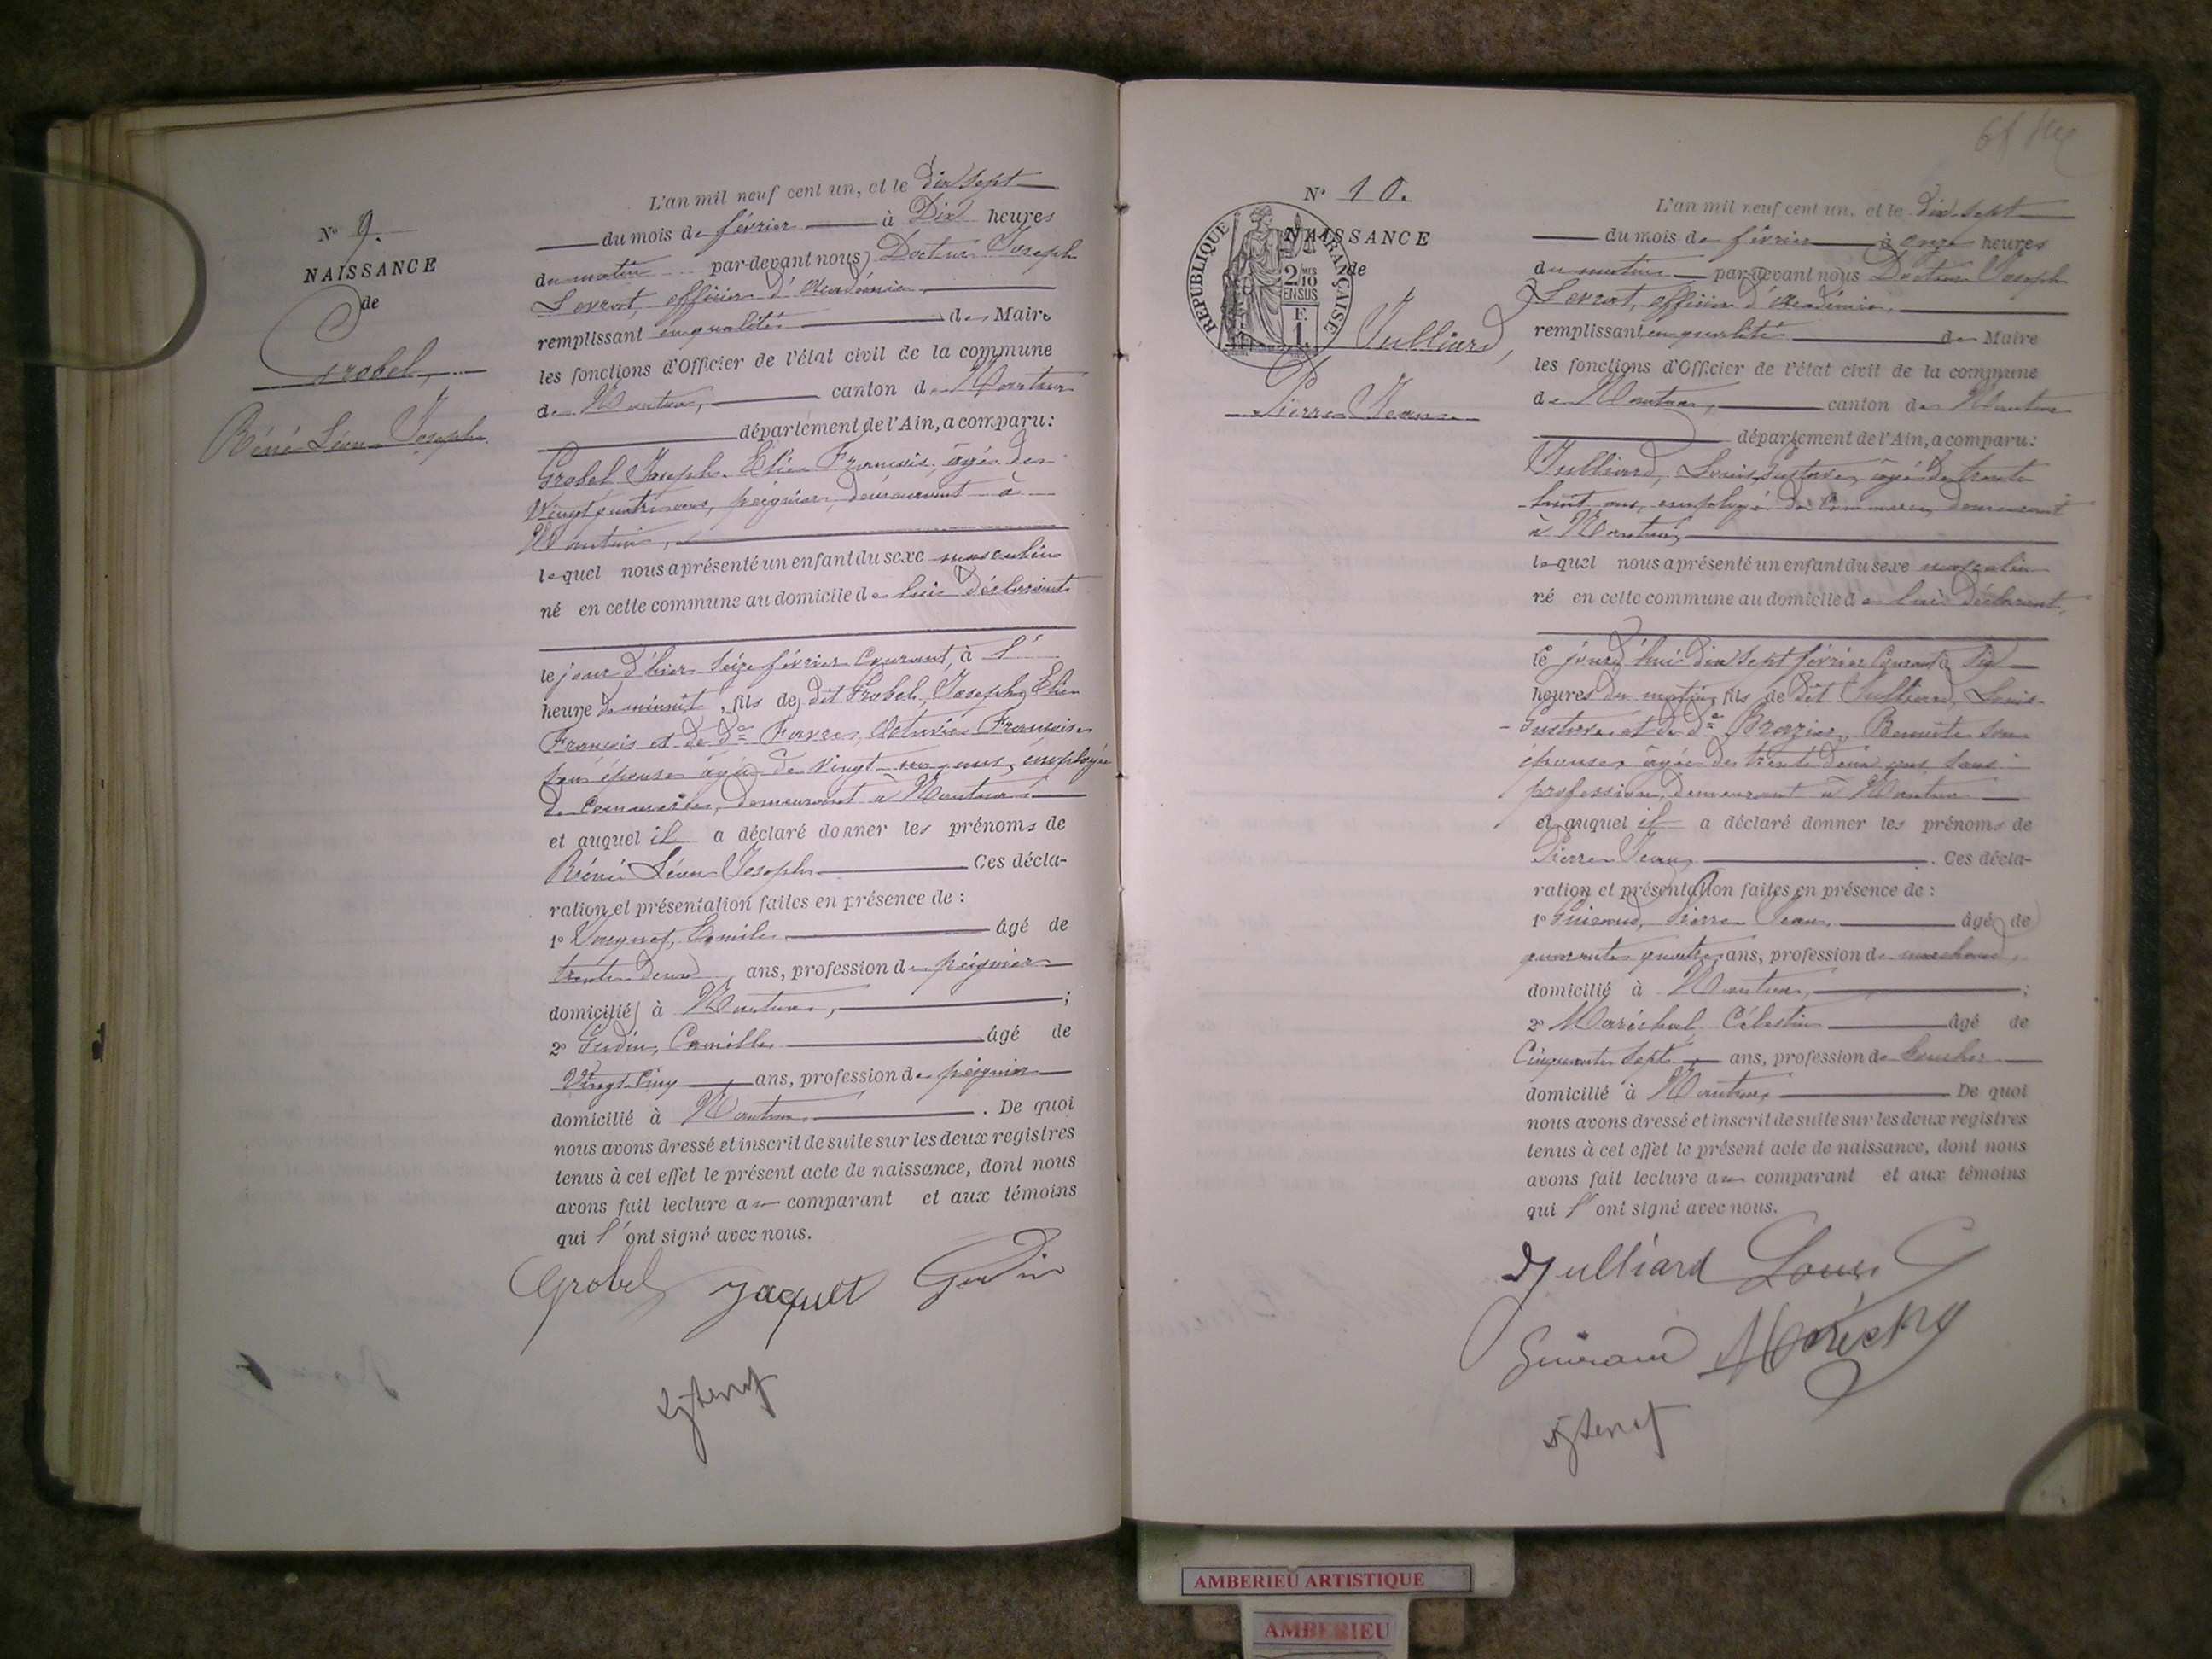 N° 9.
NAISSANCE
de
Grobel,
Réné Léon Joseph
L'an mil neuf cent un, et le dix sept
du mois de février à Dix heures
du matin par-devant nous Docteur Joseph
Levrat, officier d'Académie
remplissant en qualité de Maire
les fonctions d'Officier de l'état civil de la commune
de canton de
département de l'Ain, a comparu:
Grobel Joseph Elie François, âgé de
Vingt quatre ans, peignier, demeurant à
lequel nous a présenté un enfant du sexe masculin
né en cette commune au domicile de lui déclarant
le jour d'hier seize février courant, à l'
heure de minuit, fils de dit Grobel, Joseph Elie
François et de de Favre, Octavie Françoise
son épouse âgée de vingt ans, employée
de commerce, demeurant à
et auquel il a déclaré donner les prénoms de
Réné Léon Joseph Ces décla-
ration et présentation faites en présence de :
1° âgé de
trente deux ans, profession de peignier
domicilié à ;
2° Gudin, Camille âgé de
Vingt Cinq ans, profession de peignier
domicilié à . De quoi
nous avons dressé et inscrit de suite sur les deux registres
tenus à cet effet le présent acte de naissance, dont nous
avons fait lecture au comparant et aux témoins
qui l'ont signé avec nous.
Grobel Jaquet Gudin
N° 10.
NAISSANCE
de
RÉPUBLIQUE FRANÇAISE
2/10 EN SUS
F. 1
Julliard,
Pierre Jean
L'an mil neuf cent un, et le dix-sept
du mois de février à onze heures
du matin par-devant nous Docteur Joseph
Levrat, officier d'Académie,
remplissant en qualité de Maire
les fonctions d'Officier de l'état civil de la commune
de canton de
département de l'Ain, a comparu:
Julliard, Louis Gustave, âgé de trente
huit ans, employé de Commerce, demeurant
à
lequel nous a présenté un enfant du sexe masculin
né en cette commune au domicile de lui déclarant,
le jourd'hui dix sept février Courant à six
heures du matin, fils de dit Julliard, Louis
Gustave et de de Brazier, Benoite son
épouse âgée de trente deux ans sans
profession, demeurant à
et auquel il a déclaré donner les prénoms de
Pierre Jean . Ces décla-
ration et présentation faites en présence de :
1° Guiraud, Pierre Jean, âgé de
quarante quatre ans, profession de marchand,
domicilié à ;
2° Maréchal Célestin âgé de
Cinquante sept ans, profession de boucher
domicilié à De quoi
nous avons dressé et inscrit de suite sur les deux registres
tenus à cet effet le présent acte de naissance, dont nous
avons fait lecture au comparant et aux témoins
qui l'ont signé avec nous.
Julliard Louis G
Guiraud
AMBERIEU ARTISTIQUE
AMBERIEU